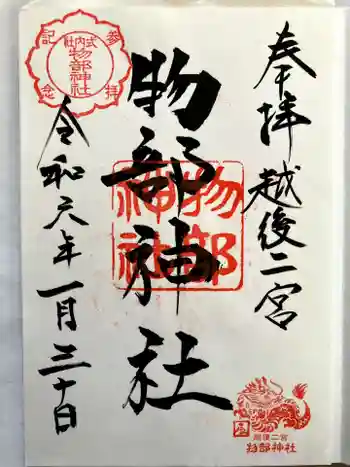 奉拝 越後二宮
物部神社
令和元年一月三十日
参拝
記念
式内社
物部神社
物部
神社
越後二宮
物部神社